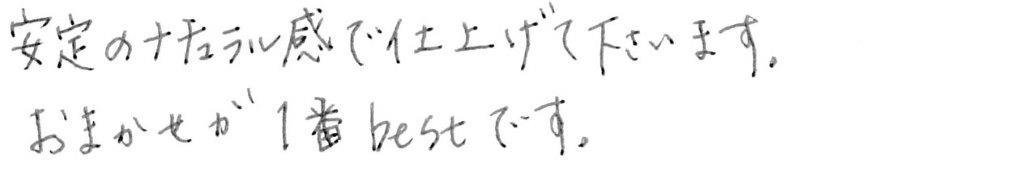 安定のナチュラル感で仕上げて下さいます。
おまかせが1番bestです。